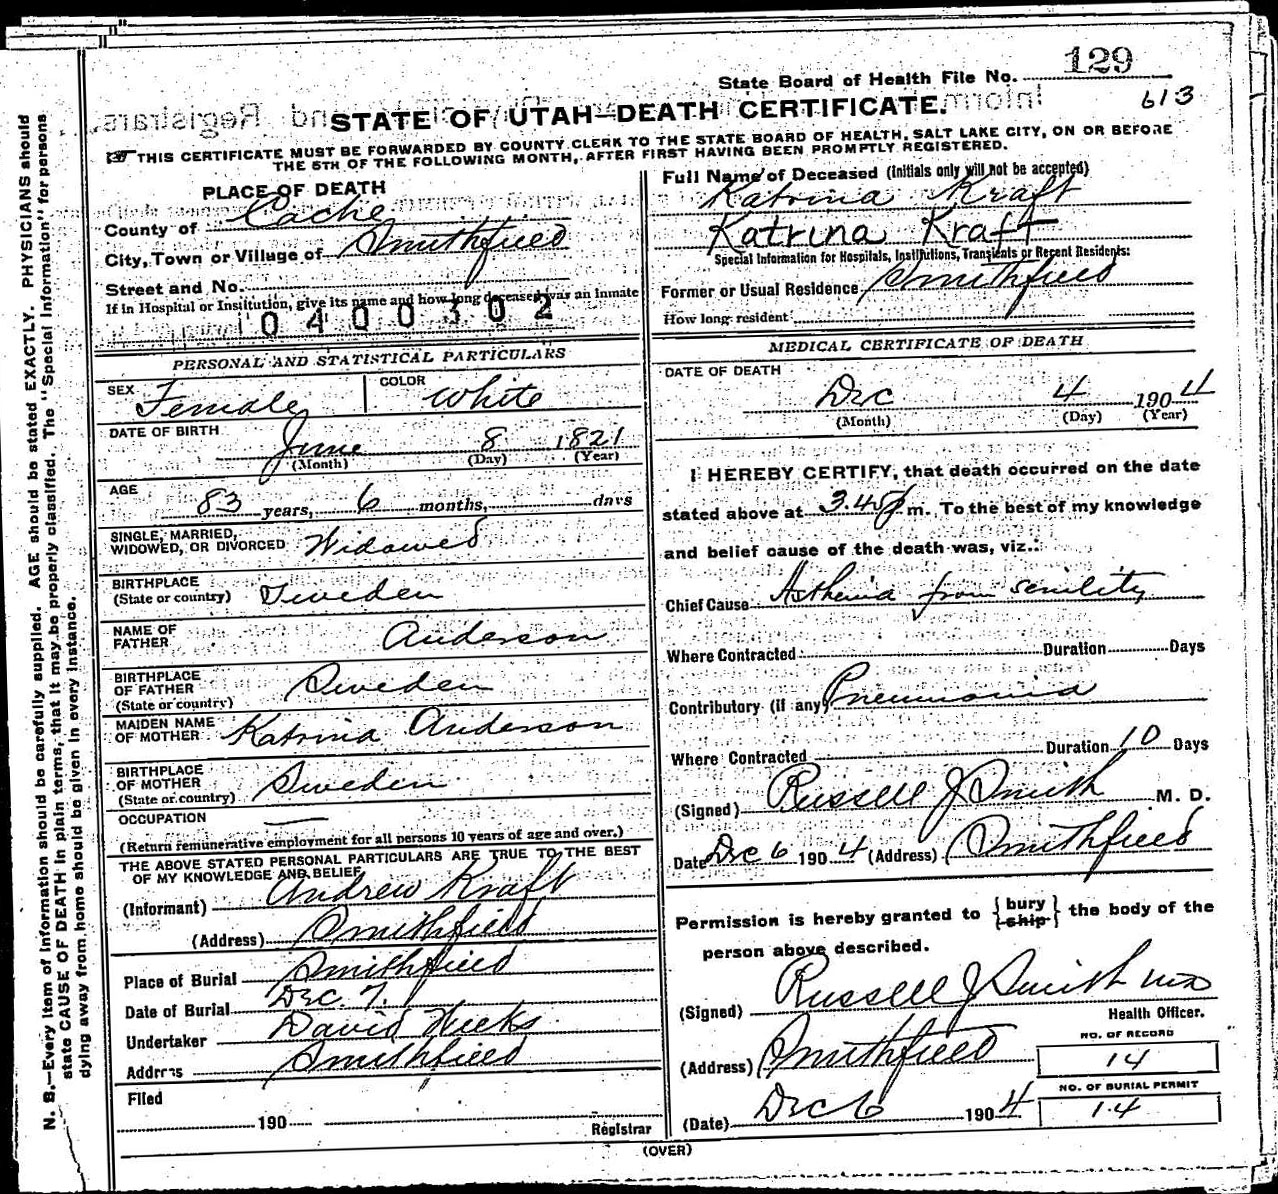 State Board of Health File No. 129
613
STATE OF UTAH—DEATH CERTIFICATE.
THIS CERTIFICATE MUST BE FORWARDED BY COUNTY CLERK TO THE STATE BOARD OF HEALTH, SALT LAKE CITY, ON OR BEFORE
THE 5TH OF THE FOLLOWING MONTH, AFTER FIRST HAVING BEEN PROMPTLY REGISTERED.
PLACE OF DEATH
County of Cache
City, Town or Village of Smithfield
Street and No.
If in Hospital or Institution, give its name and how long deceased was an inmate
0400302
PERSONAL AND STATISTICAL PARTICULARS
SEX Female COLOR White
DATE OF BIRTH June 8 1821
(Month) (Day) (Year)
AGE 83 years, 6 months, days
SINGLE, MARRIED,
WIDOWED, OR DIVORCED Widowed
BIRTHPLACE
(State or country) Sweden
NAME OF
FATHER Anderson
BIRTHPLACE
OF FATHER Sweden
(State or country)
MAIDEN NAME
OF MOTHER Katrina Anderson
BIRTHPLACE
OF MOTHER Sweden
(State or country)
OCCUPATION —
(Return remunerative employment for all persons 10 years of age and over.)
THE ABOVE STATED PERSONAL PARTICULARS ARE TRUE TO THE BEST
OF MY KNOWLEDGE AND BELIEF
(Informant) Andrew Kraft
(Address) Smithfield
Place of Burial Smithfield
Date of Burial Dec. 7.
Undertaker David Weeks
Address Smithfield
Filed
190
Registrar
Full Name of Deceased (Initials only will not be accepted)
Katrina Kraft
Katrina Kraft
Special Information for Hospitals, Institutions, Transients or Recent Residents:
Former or Usual Residence Smithfield
How long resident
MEDICAL CERTIFICATE OF DEATH
DATE OF DEATH
Dec 4 1904
(Month) (Day) (Year)
I HEREBY CERTIFY, that death occurred on the date
stated above at 3.45 p m. To the best of my knowledge
and belief cause of the death was, viz.:
Chief Cause Asthenia from senility
Where Contracted Duration Days
Contributory (if any) Pneumonia
Where Contracted Duration 10 Days
(Signed) Russell J Smith M. D.
Date Dec 6 1904 (Address) Smithfield
Permission is hereby granted to { bury ship } the body of the
person above described.
(Signed) Russell J Smith MD
Health Officer.
(Address) Smithfield
NO. OF RECORD
14
NO. OF BURIAL PERMIT
14
(Date) Dec 6 1904
(OVER)
N. B.—Every item of information should be carefully supplied. AGE should be stated EXACTLY. PHYSICIANS should
state CAUSE OF DEATH in plain terms, that it may be properly classified. The "Special Information" for persons
dying away from home should be given in every instance.